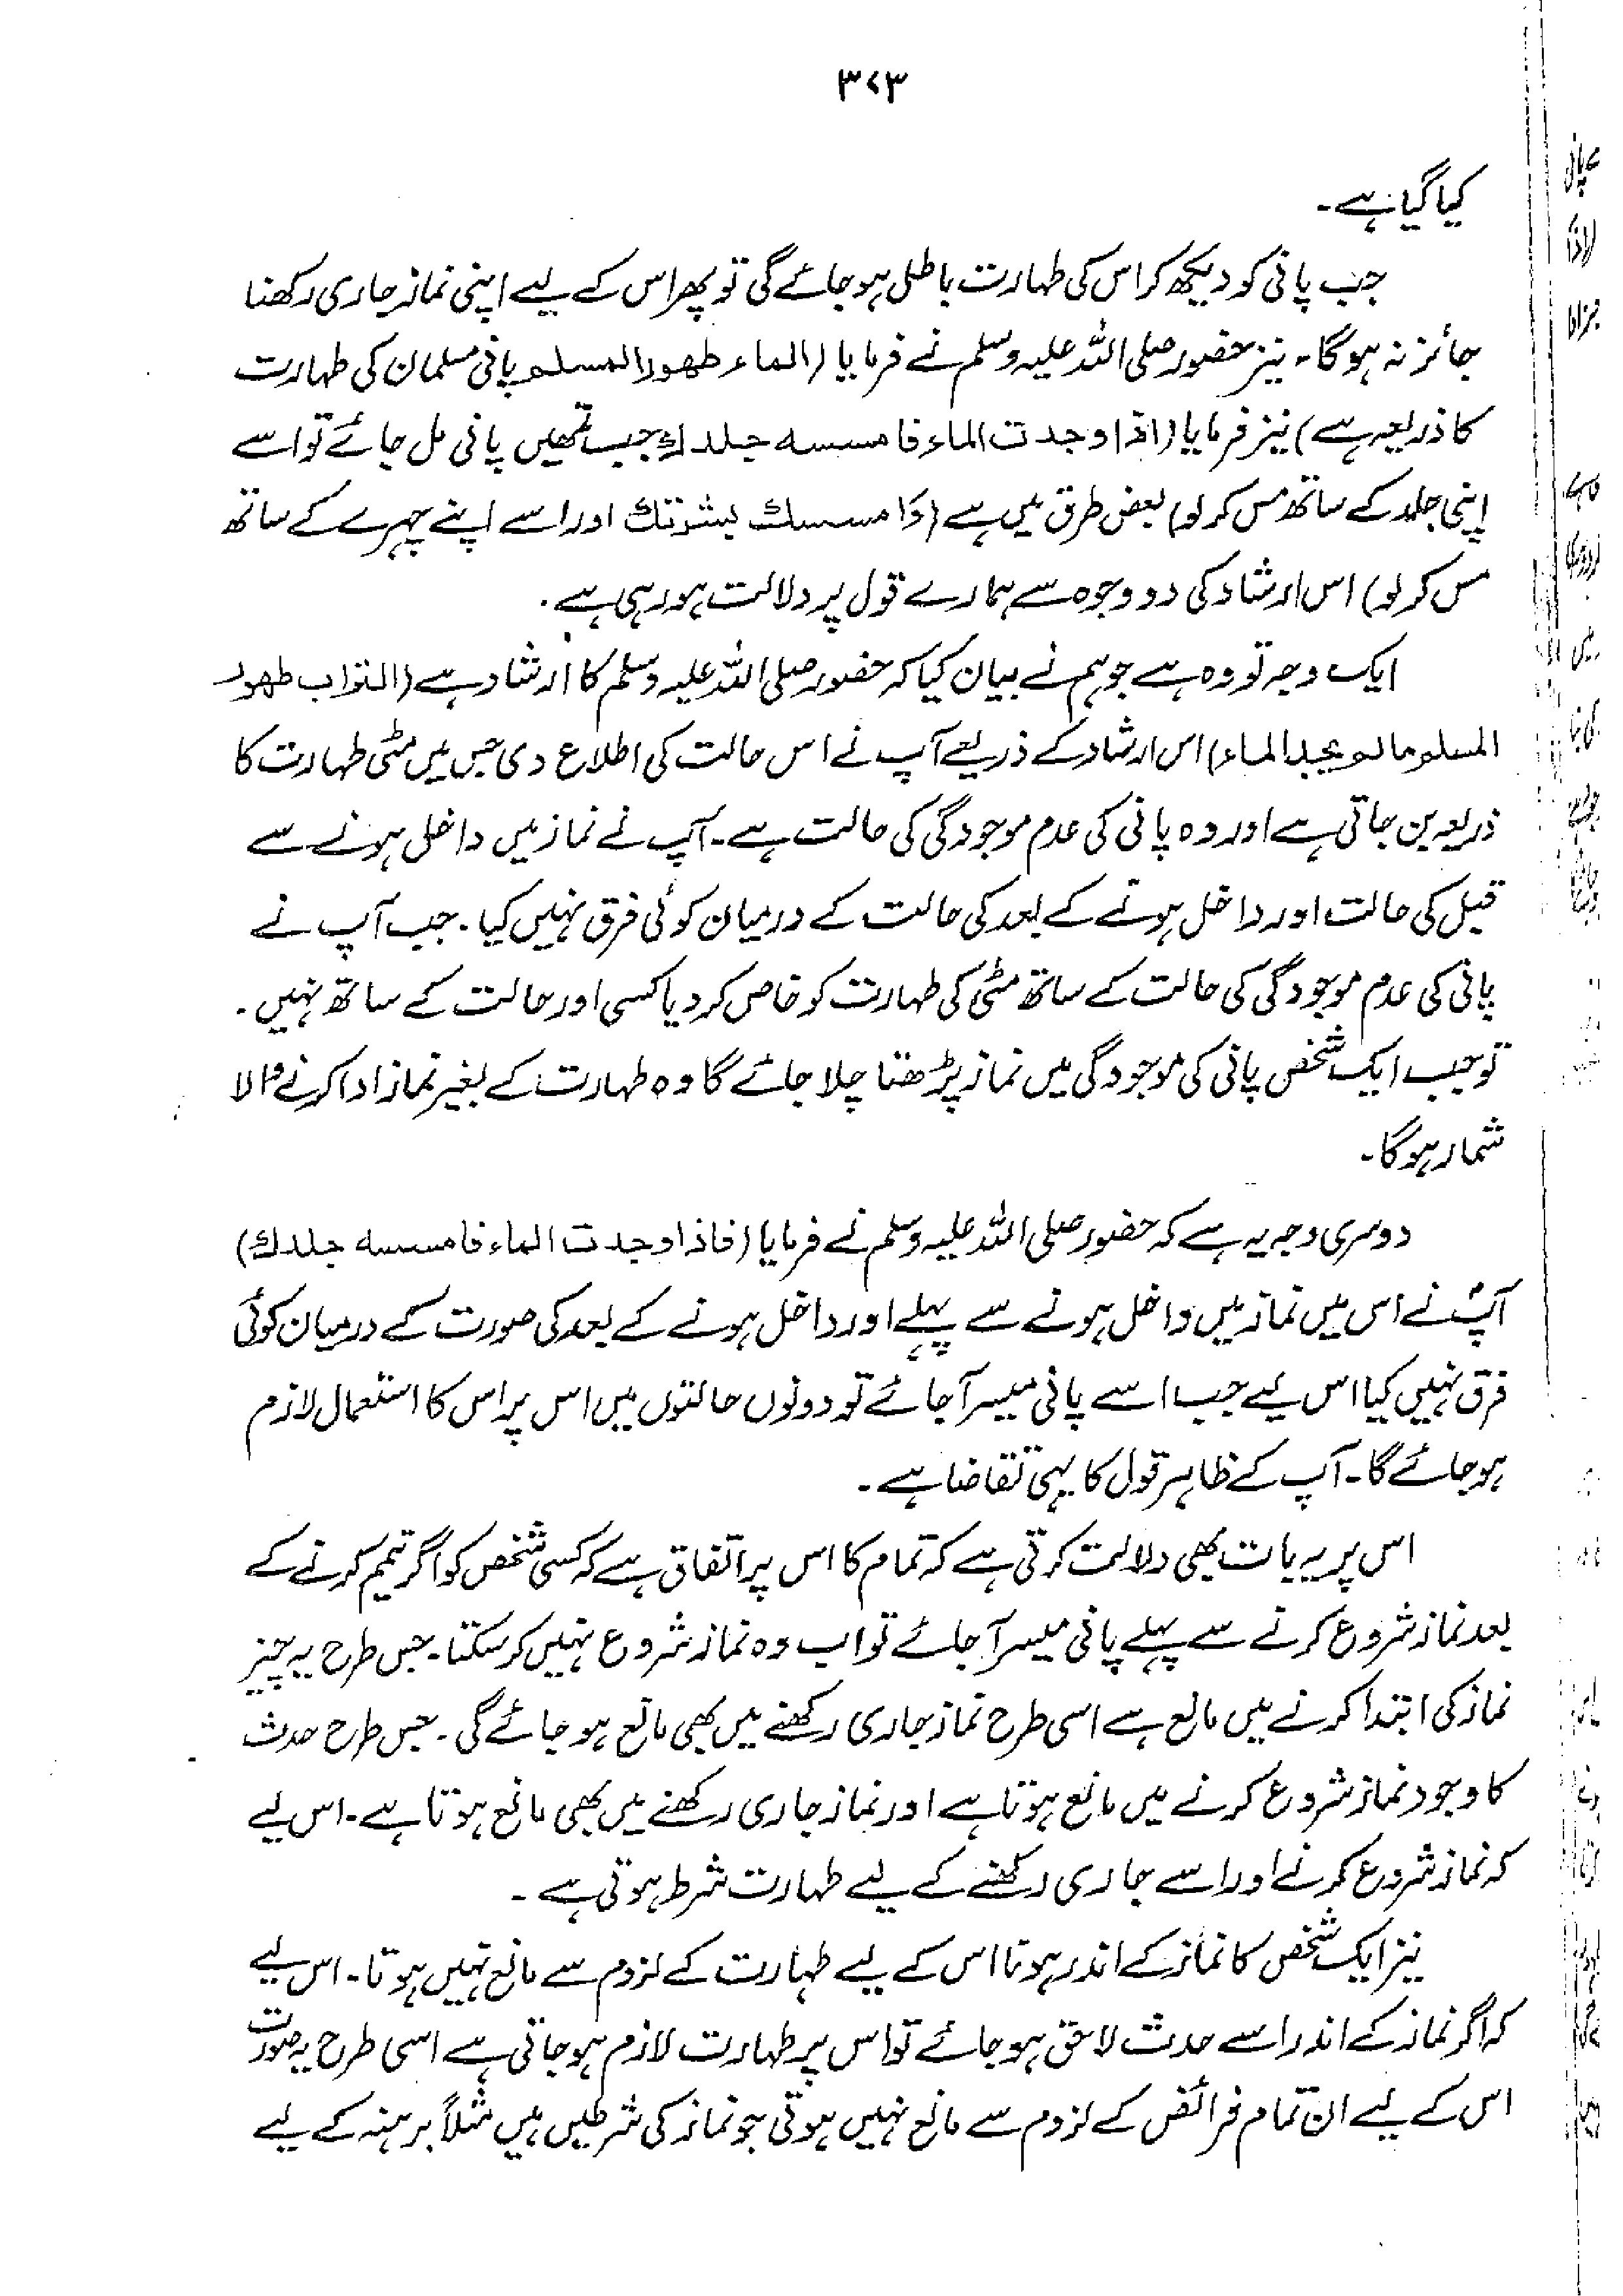 ۳۷۳
کیا گیا ہے۔
جب پانی کو دیکھ کر اس کی طہارت باطل ہو جائے گی تو پھر اس کے لیے اپنی نماز جاری رکھنا
جائز نہ ہوگا۔ نیز حضور صلی اللہ علیہ وسلم نے فرمایا (الماء طهور المسلم پانی مسلمان کی طہارت
کا ذریعہ ہے) نیز فرمایا (اذا وجدت الماء فامسسه جلدك جب تمھیں پانی مل جائے تو اسے
اپنی جلد کے ساتھ مس کر لو) بعض طرق میں ہے (وَامسسك بشرتك اور اسے اپنے چہرے کے ساتھ
مس کر لو) اس ارشاد کی دو وجوہ سے ہمارے قول پر دلالت ہو رہی ہے۔
ایک وجہ تو وہ ہے جو ہم نے بیان کیا کہ حضور صلی اللہ علیہ وسلم کا ارشاد ہے (التراب طهور
المسلم مالم يجد الماء) اس ارشاد کے ذریعے آپ نے اس حالت کی اطلاع دی جس میں مٹی طہارت کا
ذریعہ بن جاتی ہے اور وہ پانی کی عدم موجودگی کی حالت ہے۔ آپ نے نماز میں داخل ہونے سے
قبل کی حالت اور داخل ہونے کے بعد کی حالت کے درمیان کوئی فرق نہیں کیا۔ جب آپ نے
پانی کی عدم موجودگی کی حالت کے ساتھ مٹی کی طہارت کو خاص کر دیا کسی اور حالت کے ساتھ نہیں۔
تو جب ایک شخص پانی کی موجودگی میں نماز پڑھتا چلا جائے گا وہ طہارت کے بغیر نماز ادا کرنے والا
شمار ہوگا۔
دوسری وجہ یہ ہے کہ حضور صلی اللہ علیہ وسلم نے فرمایا (فاذا وجدت الماء فامسسه جلدك)
آپؐ نے اس میں نماز میں داخل ہونے سے پہلے اور داخل ہونے کے بعد کی صورت کے درمیان کوئی
فرق نہیں کیا اس لیے جب اسے پانی میسر آ جائے تو دونوں حالتوں میں اس پر اس کا استعمال لازم
ہو جائے گا۔ آپ کے ظاہر قول کا یہی تقاضا ہے۔
اس پر یہ بات بھی دلالت کرتی ہے کہ تمام کا اس پر اتفاق ہے کہ کسی شخص کو اگر تیمم کرنے کے
بعد نماز شروع کرنے سے پہلے پانی میسر آ جائے تو اب وہ نماز شروع نہیں کر سکتا۔ جس طرح یہ چیز
نماز کی ابتدا کرنے میں مانع ہے اسی طرح نماز جاری رکھنے میں بھی مانع ہو جائے گی۔ جس طرح حدث
کا وجود نماز شروع کرنے میں مانع ہوتا ہے اور نماز جاری رکھنے میں بھی مانع ہوتا ہے۔ اس لیے
کہ نماز شروع کرنے اور اسے جاری رکھنے کے لیے طہارت شرط ہوتی ہے۔
نیز ایک شخص کا نماز کے اندر ہونا اس کے لیے طہارت کے لزوم سے مانع نہیں ہوتا۔ اس لیے
کہ اگر نماز کے اندر اسے حدث لاحق ہو جائے تو اس پر طہارت لازم ہو جاتی ہے اسی طرح یہ صورت
اس کے لیے ان تمام فرائض کے لزوم سے مانع نہیں ہوتی جو نماز کی شرطیں ہیں مثلاً برہنہ کے لیے